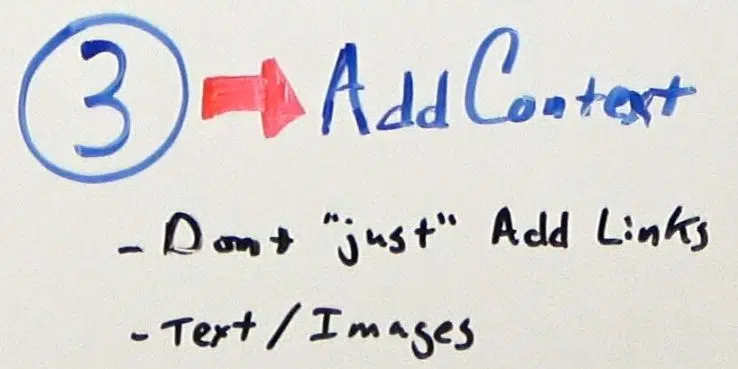 3 Add Context
- Dont "just" Add Links
- Text / Images